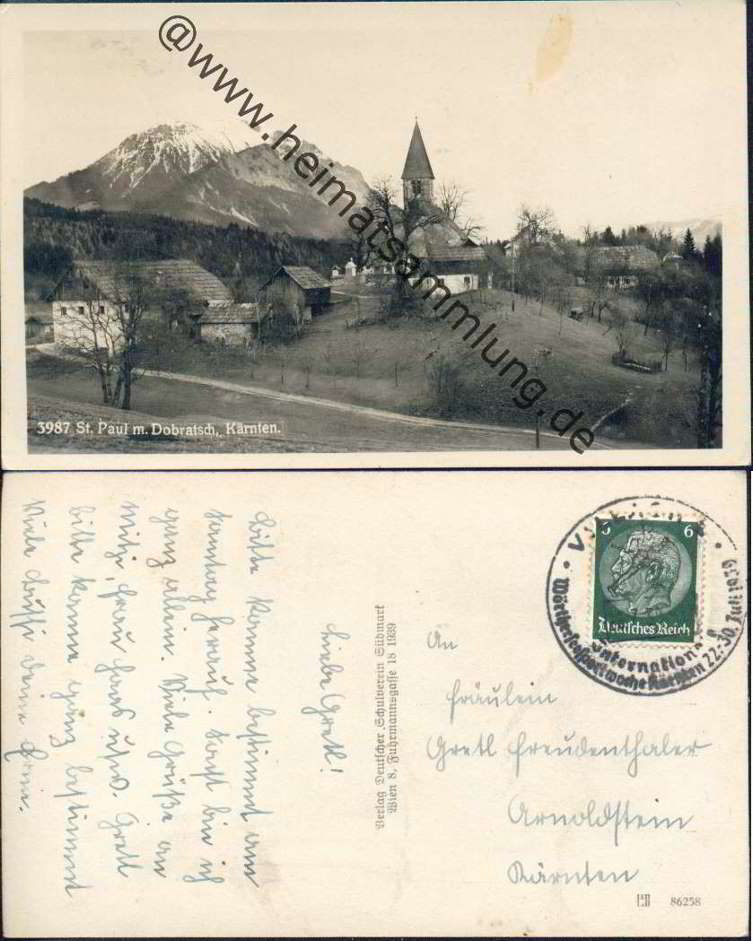 @www.heimatsammlung.de
3987 St. Paul m. Dobratsch, Kärnten.
Liebe Gretl!
Bitte komme bestimmt am
Sonntag herauf. Sonst bin ich
ganz allein. Viele Grüße an
Mitzi, Frau Hans usw. Gretl
bitte komme ganz bestimmt
Viele Bussi deine
Verlag Deutscher Schulverein Südmark
Wien 8, Fuhrmannsgasse 18 1939
6 6
Deutsches Reich
Internation
Wörthersee Sportwoche Kärnten 22.-30. Juli 1939
An
Fräulein
Gretl Freudenthaler
Arnoldstein
Kärnten
86258